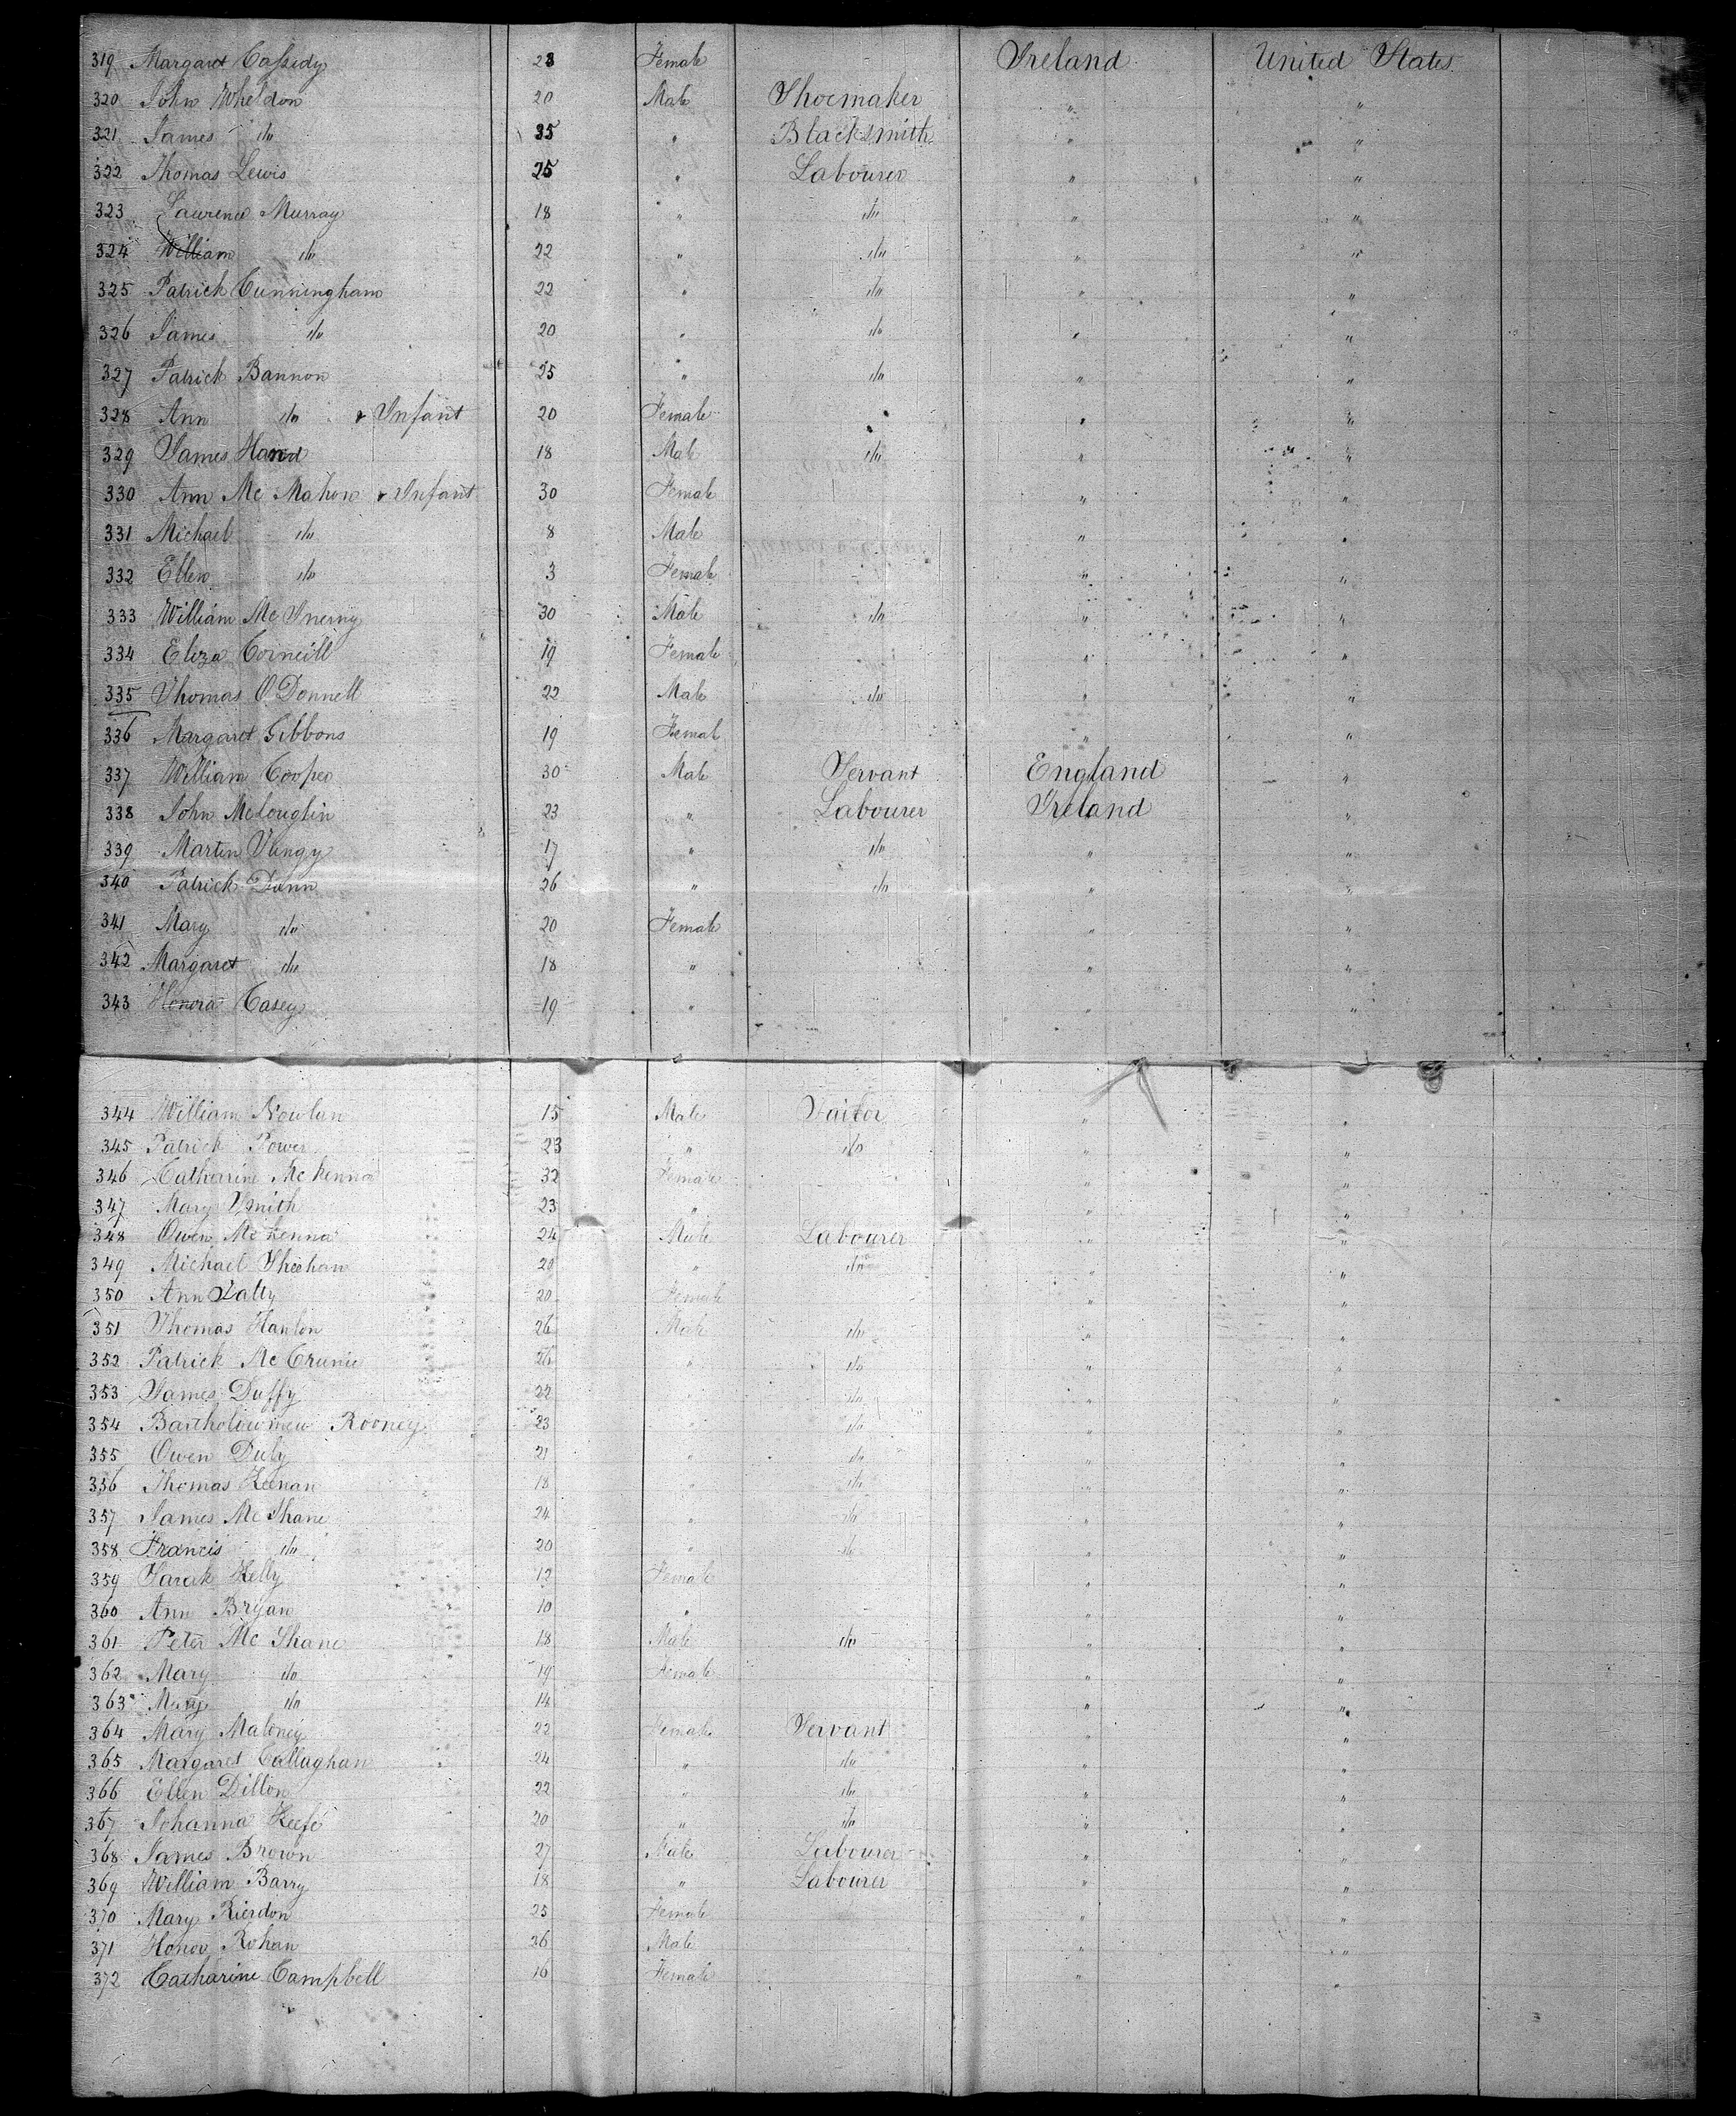 319 Margaret Cassidy 23 Female Ireland United States
320 John Wheldon 20 Male Shoemaker " "
321 James do 35 " Blacksmith " "
322 Thomas Lewis 25 " Labourer " "
323 Laurence Murray 18 " do " "
324 William do 22 " do " "
325 Patrick Cunningham 22 " do " "
326 James do 20 " do " "
327 Patrick Bannon 25 " do " "
328 Ann do & Infant 20 Female " "
329 James Hand 18 Male do " "
330 Ann Mc Mahon & Infant 30 Female " "
331 Michael do 8 Male " "
332 Ellen do 3 Female " "
333 William Mc Inerny 30 Male do " "
334 Eliza Corneill 19 Female " "
335 Thomas O'Donnell 22 Male do " "
336 Margaret Gibbons 19 Female " "
337 William Cooper 30 Male Servant England "
338 John McLoughlin 23 " Labourer Ireland "
339 Martin 17 " do " "
340 Patrick Dunn 26 " do " "
341 Mary do 20 Female " "
342 Margaret do 18 " " "
343 Honora Casey 19 " " "
344 William Nowlan 15 Male Tailor " "
345 Patrick Power 23 " do " "
346 Catharine Mc Kenna 32 Female " "
347 Mary Smith 23 " " "
348 Owen Mc Kenna 24 Male Labourer " "
349 Michael Sheehan 20 " do " "
350 Ann Lally 20 Female " "
351 Thomas Hanlon 26 Male do " "
352 Patrick Mc Crunie 26 " do " "
353 James Duffy 22 " do " "
354 Bartholowmew Rooney 23 " do " "
355 Owen Duly 21 " do " "
356 Thomas Keenan 18 " do " "
357 James Mc Shane 24 " do " "
358 Francis do 20 " do " "
359 Sarah Kelly 12 Female " "
360 Ann Bryan 10 " " "
361 Peter Mc Shane 18 Male do " "
362 Mary do 19 Female " "
363 Mary do 14 " "
364 Mary Maloney 22 Female Servant " "
365 Margaret Callaghan 24 " do " "
366 Ellen Dillon 22 " do " "
367 Johanna Keefe 20 " do " "
368 James Brown 27 Male Labourer " "
369 William Barry 18 " Labourer " "
370 Mary Rierdon 25 Female " "
371 Honor Rohan 26 Male " "
372 Catharine Campbell 16 Female " "